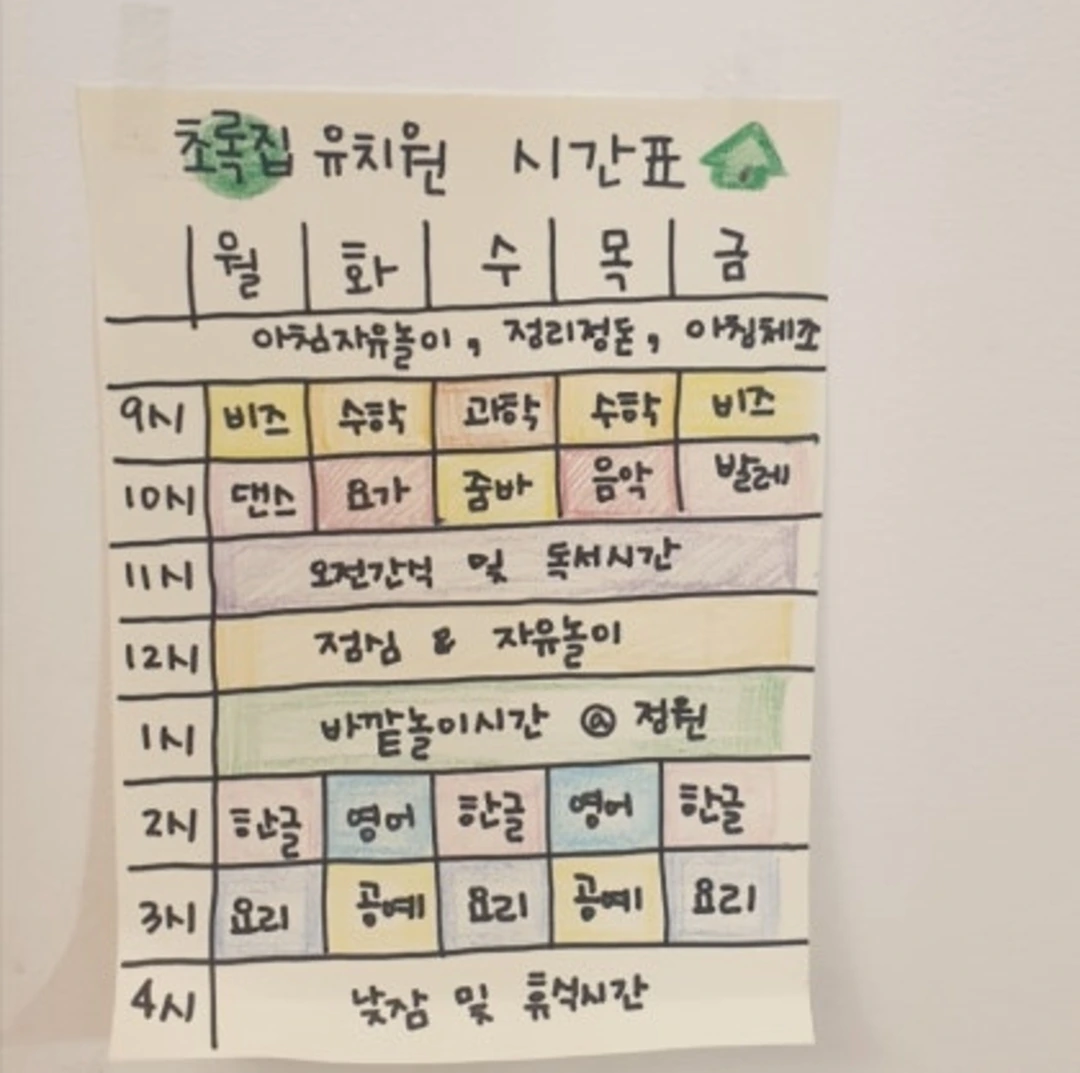 초록집 유치원 시간표
월 화 수 목 금
아침자유놀이, 정리정돈, 아침체조
9시 비즈 수학 과학 수학 비즈
10시 댄스 요가 줌바 음악 발레
11시 오전간식 및 독서시간
12시 점심 & 자유놀이
1시 바깥놀이시간 @ 정원
2시 한글 영어 한글 영어 한글
3시 요리 공예 요리 공예 요리
4시 낮잠 및 휴식시간